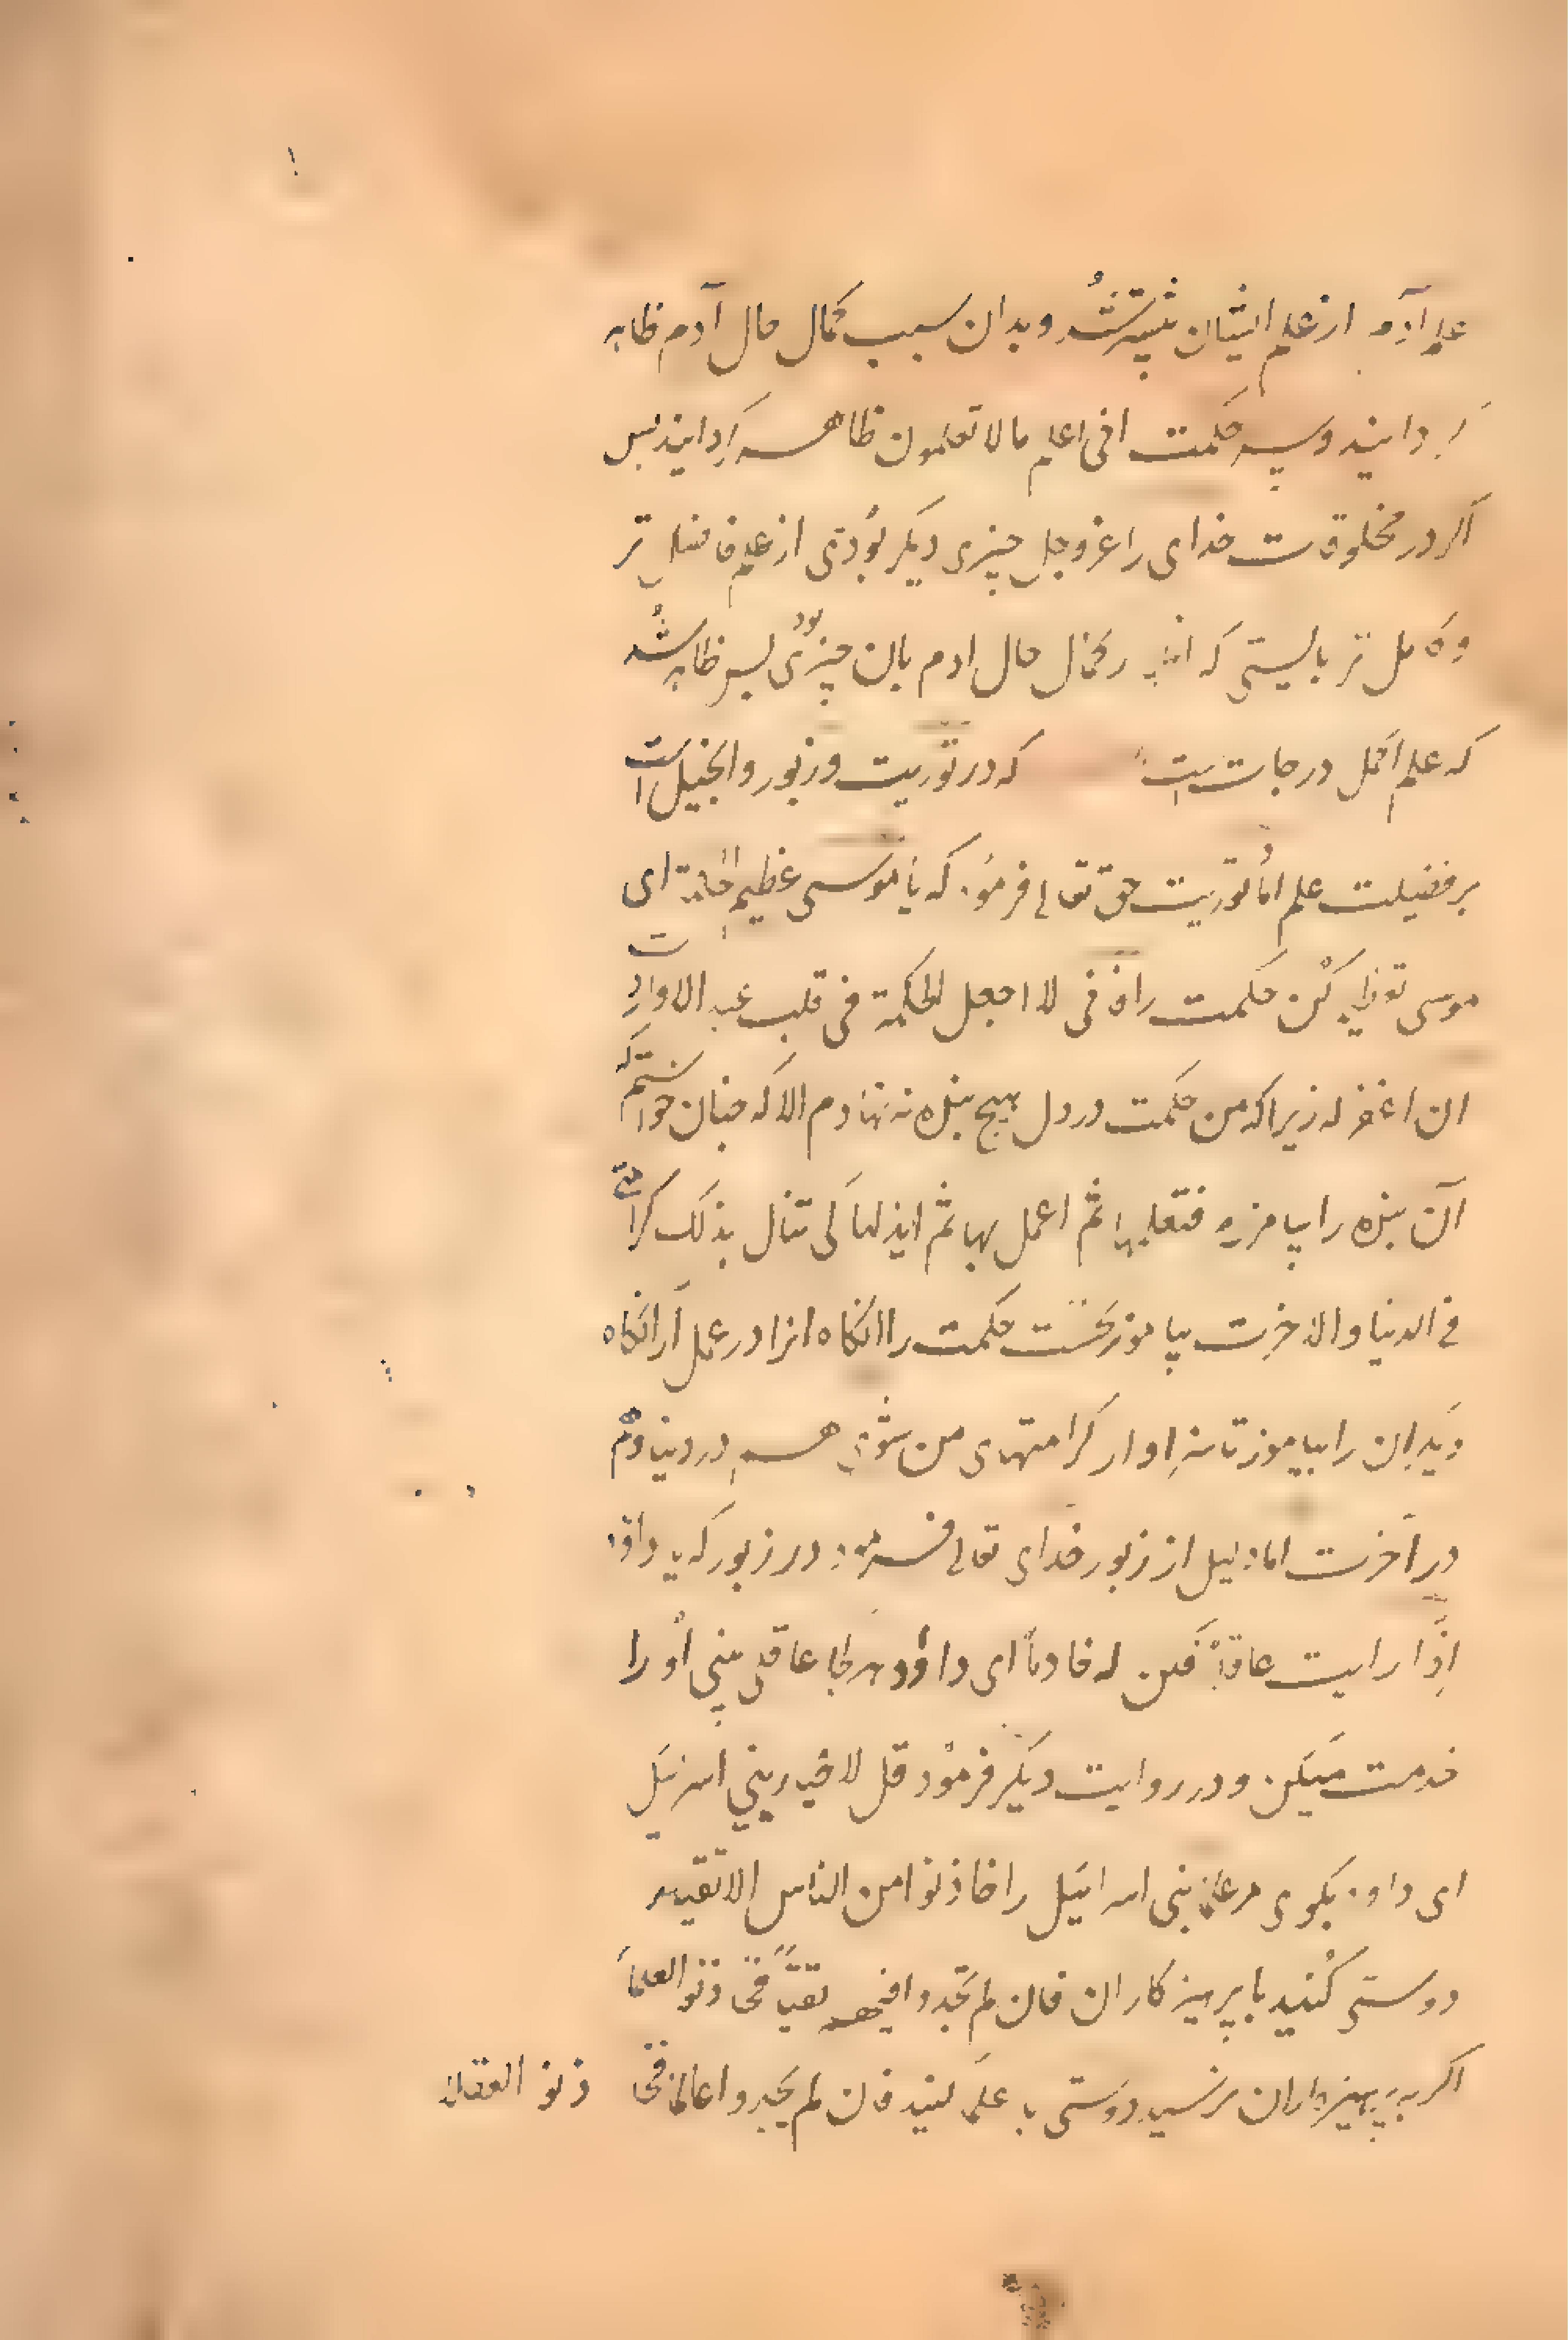 علم آدم از علم ایشان بیشتر شد و بدان سبب کمال حال آدم ظاهر
کردانیدو سر حکمت انی اعلم مالا تعلمون ظاهر کردانید پس
اکر در مخلوقات خدای را عز و جل چیزی دیکر بودی از علم فاضل تر
و کامل تر بایستی که اظهار کمال حال ادم بان چیز بودی پس ظاهر شد
که علم اکمل درجات است که در توریت و زبور و انجیل است
بر فضیلت علم اما توریت حق تعالی فرمود که یا موسی عظم الحکمة ای
موسی تعظیم کن حکمت را فانی لا اجعل الحکمة فی قلب عبد الا واردت
ان اغفر له زیرا که من حکمت در دل هیچ بنده ننهادم الا که چنان خواستم که
آن بنده را بیامرزم فتعلمها ثم اعمل بها ثم ابذلها کی تنال بذلک کرامتی
فی الدنیا والاخرت بیاموز نخست حکمت را انکاه انرا در عمل آر انکاه
دیکران را بیاموز تا سزاوار کرامتهای من شوی هم در دنیا و هم
در آخرت اما دلیل از زبور خدای تعالی فرمود در زبور که یا داود
اذا رایت عاقلا فکن له خادما ای داود هر کجا عاقلی بینی او را
خدمت میکن و در روایت دیکر فرمود قل لاحبار بنی اسرائیل
ای داود بکوی مر علماء بنی اسرائیل را خاذنوا من الناس الاتقیاء
دوستی کنید با پرهیزکاران فان لم تجدوا فیهم تقیا فخاذنو العلماء
اکر به پرهیزکاران نرسید دوستی با علما کنید فان لم تجدوا عالما فخاذنو العقلاء